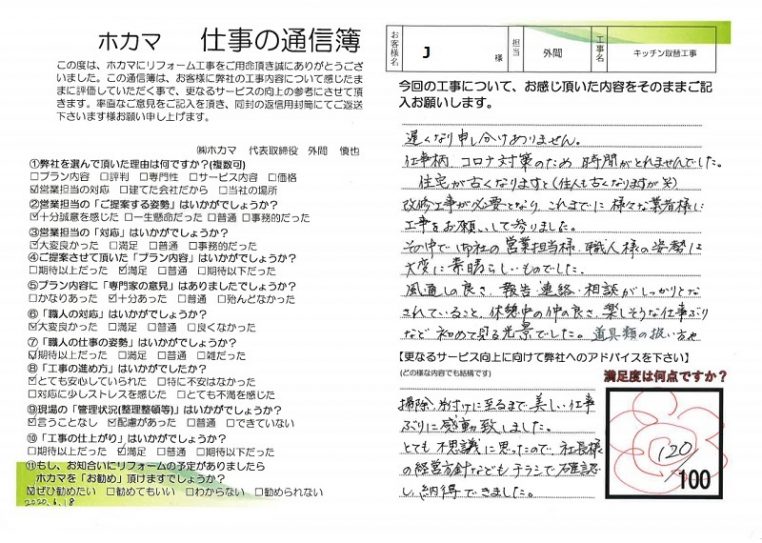 ホカマ 仕事の通信簿
この度は、ホカマにリフォーム工事をご用命頂き誠にありがとうござ
いました。この通信簿は、お客様に弊社の工事内容について感じたま
まに評価していただく事で、更なるサービスの向上の参考にさせて頂
きます。率直なご意見をご記入を頂き、同封の返信用封筒にてご返送
下さいます様お願い申し上げます。
㈱ホカマ 代表取締役 外間
①弊社を選んで頂いた理由は何ですか?(複数可)
□プラン内容 □評判 □専門性 □サービス内容 □価格
☑営業担当の対応 □建てた会社だから □当社の場所
②営業担当の「ご提案する姿勢」はいかがでしょうか?
☑十分誠意を感じた □一生懸命だった □普通 □事務的だった
③営業担当の「対応」はいかがでしょうか?
☑大変良かった □満足 □普通 □事務的だった
④ご提案させて頂いた「プラン内容」はいかがでしょうか?
□期待以上だった ☑満足 □普通 □期待以下だった
⑤プラン内容に「専門家の意見」はありましたでしょうか?
□かなりあった ☑十分あった □普通 □殆んどなかった
⑥「職人の対応」はいかがでしょうか?
☑大変良かった □満足 □普通 □良くなかった
⑦「職人の仕事の姿勢」はいかがでしょうか?
☑期待以上だった □満足 □普通 □雑だった
⑧「工事の進め方」はいかがでしたか?
☑とても安心していられた □特に不安はなかった
□対応に少しストレスを感じた □とても不満を感じた
⑨現場の「管理状況(整理整頓等)」はいかがでしょうか?
☑言うことなし ☑配慮があった □普通 □できていない
⑩「工事の仕上がり」はいかがでしょうか?
□期待以上だった ☑満足 □普通 □期待以下だった
⑪もし、お知合いにリフォームの予定がありましたら
ホカマを「お勧め」頂けますでしょうか?
☑ぜひ勧めたい □勧めてもいい □わからない □勧められない
2020.6.18
お客様名 J 様 担当 外間 工事名 キッチン取替工事
今回の工事について、お感じ頂いた内容をそのままご記
入お願いします。
遅くなり申し分けありません。
仕事柄 コロナ対策のため 時間がとれませんでした。
住宅が古くなりますと(住人も古くなりますが 笑)
改修工事が必要となり、これまでに 様々な業者様に
工事をお願いして参りました。
その中で 御社の営業担当様・職人様の姿勢は
大変に素晴らしいものでした。
風通しの良さ、報告・連絡・相談がしっかりとな
されていること、休憩中の仲の良さ、楽しそうな仕事ぶり
など 初めて見る光景でした。道具類の扱い方や
【更なるサービス向上に向けて弊社へのアドバイスを下さい】
(どの様な内容でも結構です)
掃除、片付けに至るまで 美しい仕事
ぶりに感動致しました。
とても不思議に思ったので、社長様
の経営方針なども チラシで確認
し 納得できました。
満足度は何点ですか?
120
/100